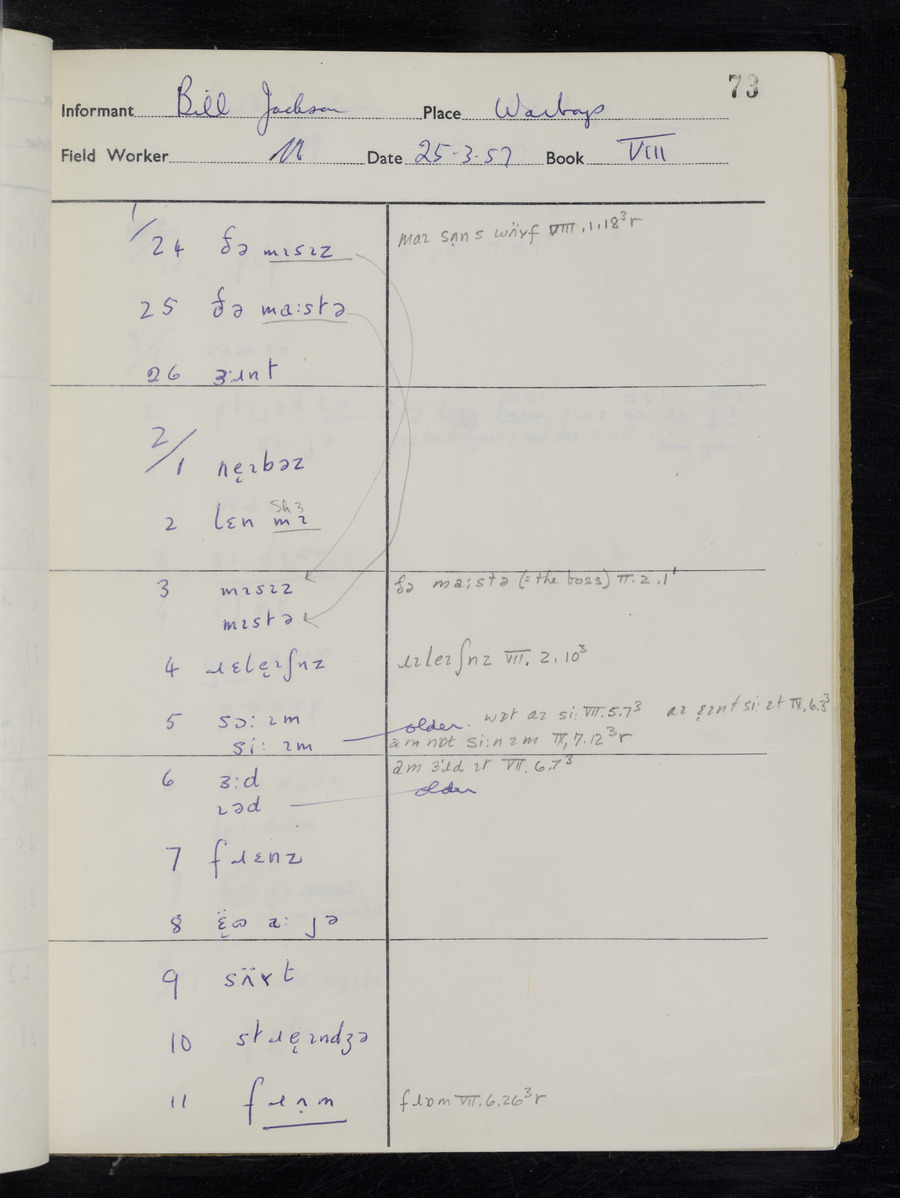 73
Informant Bill Jackson Place Warboys
Field Worker Date 25-3-57 Book VIII
1/24 ðə mɪsɪz
maɪ sʌ̣ns wʌ̈ɤf VIII.1.18³r
25 ðə mɑːstə
26 ɜːɹnt
2/1 nẹɪbəz
Sh3
2 lɛn mɪ
3 mɪsɪz
ðə maːstə (= the boss) II.2.1¹
mɪstə
4 ɹɛlẹɪʃnz
ɹɪleɪʃnz VII.2.10³
5 səː ɪm
older. wɒt əz siː VII.5.7³
siː ɪm
am nɒt siːn ɪm IX,7.12³r
6 ɜːd
am ɜːɹd ɪt VII.6.7³
ɪəd
older
7 fɹɛnz
8
9 sʌ̈ɤt
10 stɹẹɪndʒə
11 fɹʌ̣m
fɹɒm VII.6.26³r